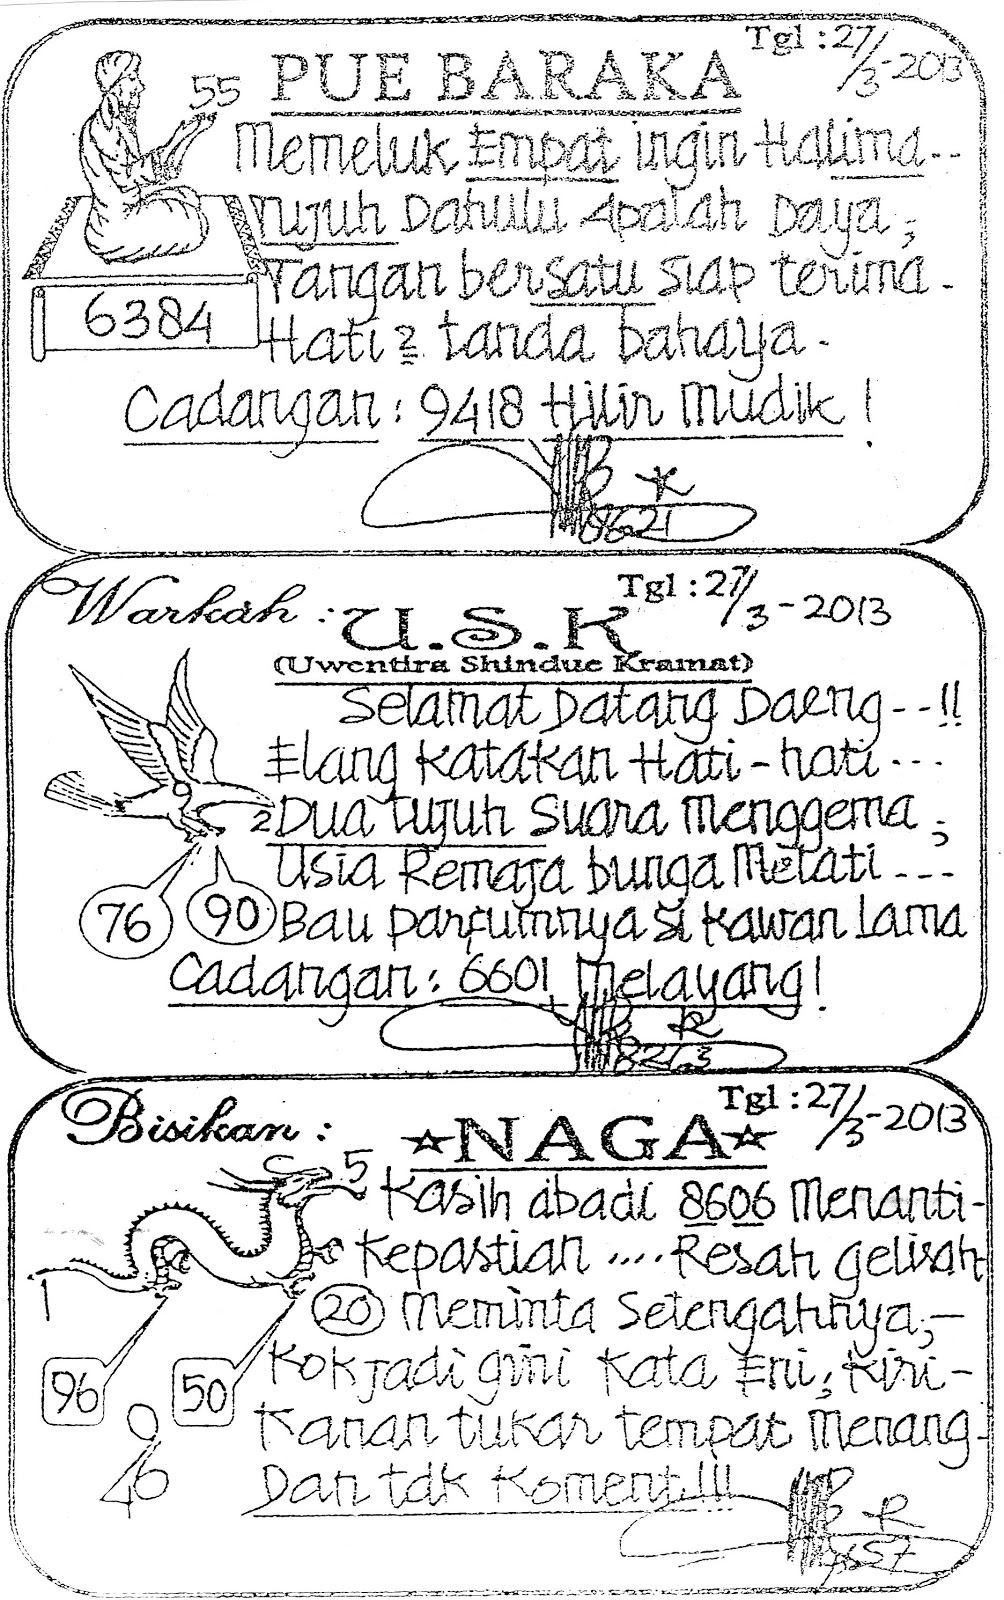 Tgl : 27/3-2013
55 PUE BARAKA
Memeluk Empat ingin Halima--
Tujuh Dahulu Apalah Daya;
Tangan bersatu siap terima-
6384
Hati2 tanda bahaya-
Cadangan: 9418 Hilir Mudik!
R
8621
Warkah:
Tgl : 27/3-2013
U.S.K
(Uwentira Shindue Kramat)
Selamat Datang Daeng--!!
Elang Katakan Hati-hati---
2 Dua tujuh Suara Menggema;
Usia Remaja bunga Melati---
76 90 Bau parfumnya si kawan Lama
Cadangan: 6601 Melayang!
R
Bisikan:
Tgl : 27/3-2013
☆NAGA☆
5 Kasih abadi 8606 Menanti-
Kepastian .... Resah gelisah
1
20 Meminta Setengahnya,-
96 50 Kok jadi gini Kata Eni; Kiri-
Kanan tukar tempat Menang-
Dan tdk Koment!!!
R